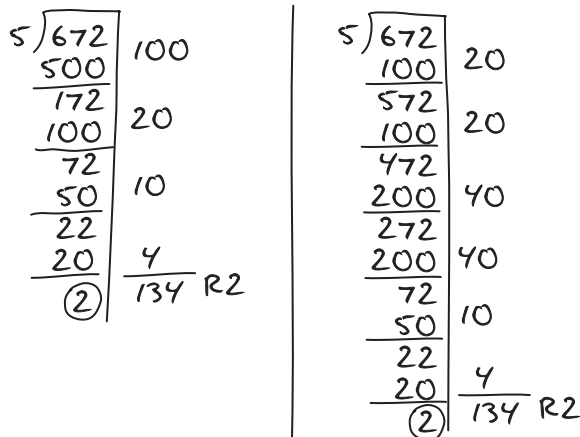 5)672
500 100
172
100 20
72
50 10
22
20 4
2 134 R2
5)672
100 20
572
100 20
472
200 40
272
200 40
72
50 10
22
20 4
2 134 R2